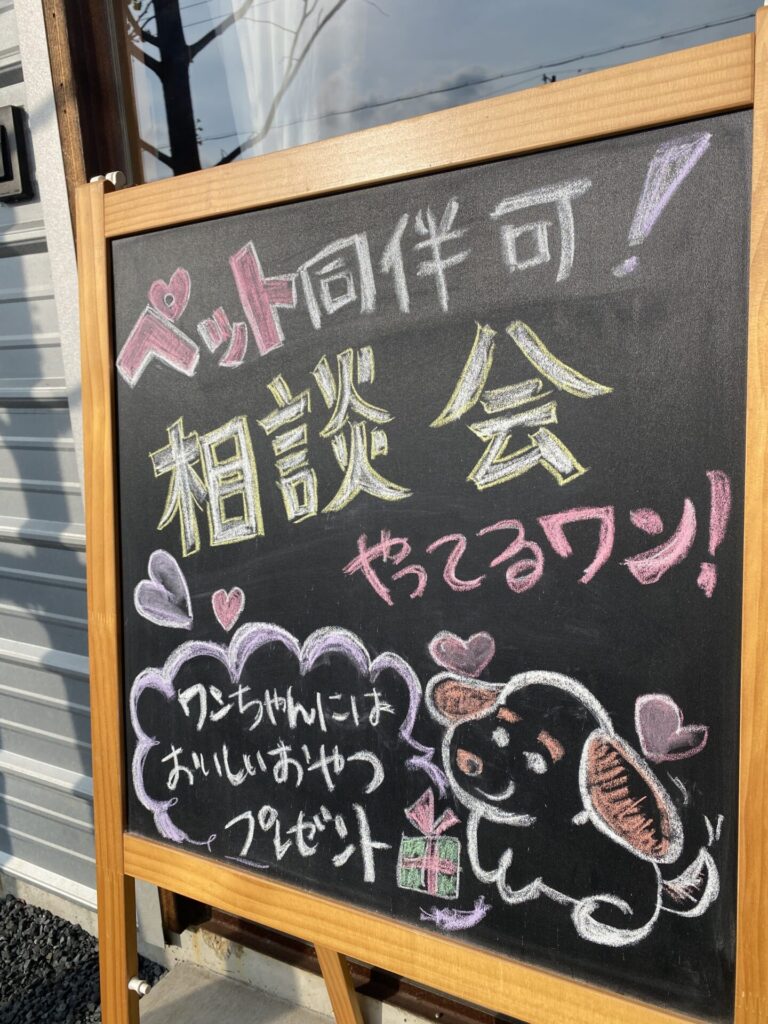 ペット同伴可!
相談会
やってるワン!
ワンちゃんには
おいしいおやつ
プレゼント